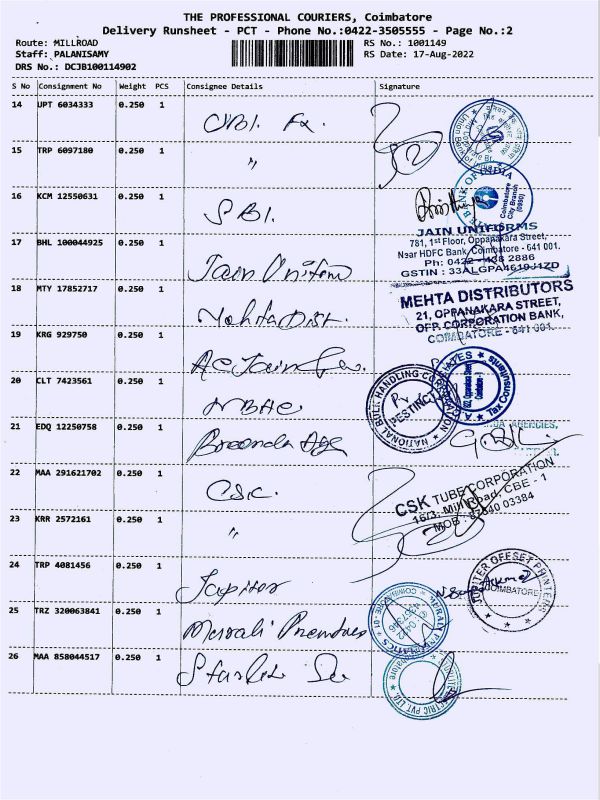 THE PROFESSIONAL COURIERS, Coimbatore
Delivery Runsheet - PCT - Phone No.:0422-3505555 - Page No.:2
Route: MILLROAD
RS No.: 1001149
Staff: PALANISAMY
RS Date: 17-Aug-2022
DRS No.: DCJB100114902
S No Consignment No Weight PCS Consignee Details Signature
14 UPT 6034333 0.250 1
15 TRP 6097180 0.250 1 "
16 KCM 12550631 0.250 1 SBI.
STATE BANK OF INDIA
Coimbatore
City Branch
17 BHL 100044925 0.250 1 Jain Uniform
JAIN UNIFORMS
781, 1st Floor, Oppanakara Street,
Near HDFC Bank, Coimbatore - 641 001.
Ph: 0422 - 438 2886
GSTIN : 33ALGPA4619J1ZD
18 MTY 17852717 0.250 1 Mehta Dist.
MEHTA DISTRIBUTORS
21, OPPANAKARA STREET,
OPP. CORPORATION BANK,
COIMBATORE - 641 001.
19 KRG 929750 0.250 1 AC Jain
20 CLT 7423561 0.250 1 NBHC
NATIONAL BULK HANDLING CORPORATION
21 EDQ 12250758 0.250 1
AGENCIES,
22 MAA 291621702 0.250 1 CSK.
CSK TUBE CORPORATION
16/3, Mill Road, CBE - 1
23 KRR 2572161 0.250 1 "
24 TRP 4081456 0.250 1 Jupiter
JUPITER OFFSET PRINTERS
COIMBATORE
25 TRZ 320063841 0.250 1
26 MAA 858044517 0.250 1